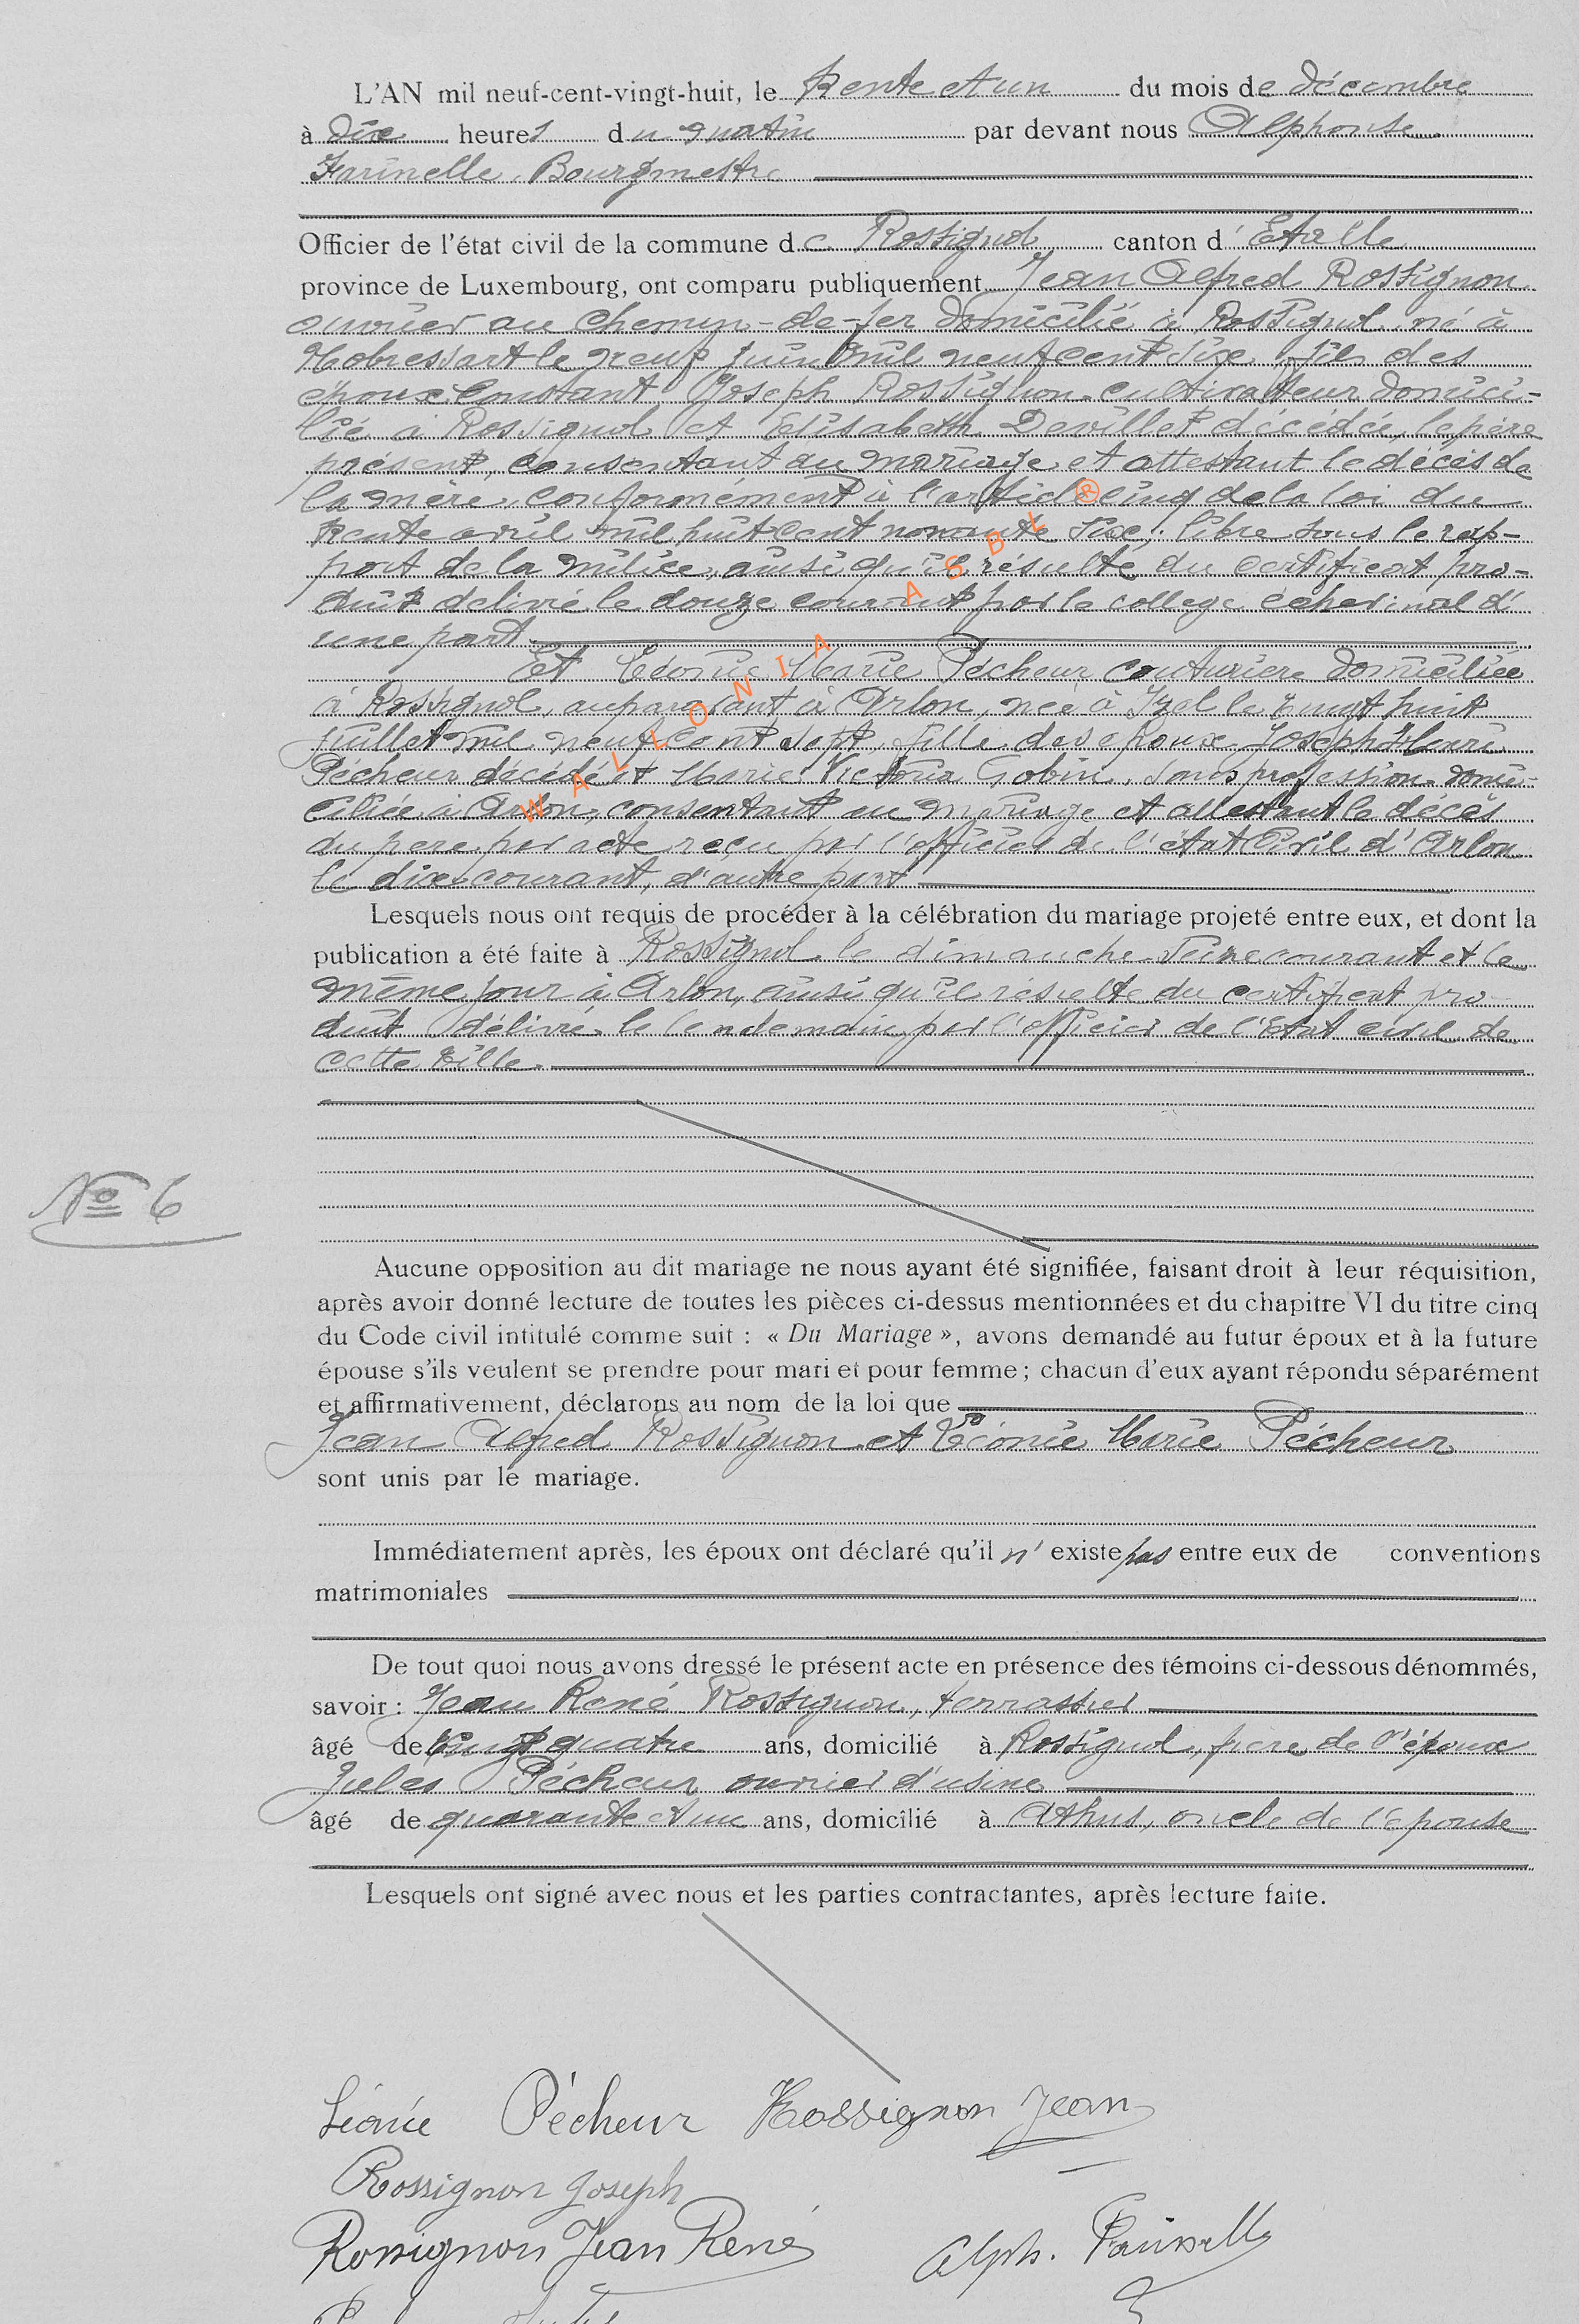 L'AN mil neuf-cent-vingt-huit, le trente et un du mois de décembre
à dix heures du matin par devant nous Alphonse
Farinelle, Bourgmestre
Officier de l'état civil de la commune de Rossignol canton d'Etalle
province de Luxembourg, ont comparu publiquement Jean Alfred Rossignon
ouvrier au chemin-de-fer domicilié à Rossignol, né à
Habressart le neuf juin mil neuf cent six, fils des
époux Constant Joseph Rossignon cultivateur domici-
lié à Rossignol et Elisabeth Devillet décédée, le père
présent, consentant au mariage et attestant le décès de
la mère, conformément à l'article cinq de la loi du
trente avril mil huit cent nonante six; libre sous le rap-
port de la milice, ainsi qu'il résulte du certificat pro-
duit délivré le douze courant par le collège échevinal d'
une part
Et Léonie Marie Pécheur couturière domiciliée
à Rossignol, auparavant à Arlon, née à Izel le vingt huit
juillet mil neuf cent sept, fille des époux Joseph Henri
Pécheur décédé et Marie Victoria Gobin, sans profession domi-
ciliée à Arlon, consentant au mariage et attestant le décès
du père par acte reçu par l'officier de l'état civil d'Arlon
le dix courant, d'autre part
WALLONIA ASBL ®
Lesquels nous ont requis de procéder à la célébration du mariage projeté entre eux, et dont la
publication a été faite à Rossignol le dimanche seize courant et le
même jour à Arlon, ainsi qu'il résulte du certificat pro-
duit délivré le lendemain par l'officier de l'état civil de
cette ville.
N° 6
Aucune opposition au dit mariage ne nous ayant été signifiée, faisant droit à leur réquisition,
après avoir donné lecture de toutes les pièces ci-dessus mentionnées et du chapitre VI du titre cinq
du Code civil intitulé comme suit : « Du Mariage », avons demandé au futur époux et à la future
épouse s'ils veulent se prendre pour mari et pour femme ; chacun d'eux ayant répondu séparément
et affirmativement, déclarons au nom de la loi que
Jean Alfred Rossignon et Léonie Marie Pécheur
sont unis par le mariage.
Immédiatement après, les époux ont déclaré qu'il n'existe pas entre eux de conventions
matrimoniales
De tout quoi nous avons dressé le présent acte en présence des témoins ci-dessous dénommés,
savoir : Jean René Rossignon, terrassier
âgé de vingt quatre ans, domicilié à Rossignol, frère de l'époux
Jules Pécheur ouvrier d'usine
âgé de quarante et un ans, domicilié à Athus, oncle de l'épouse
Lesquels ont signé avec nous et les parties contractantes, après lecture faite.
Léonie Pécheur Rossignon Jean
Rossignon Joseph
Rossignon Jean René Alph. Farinelle